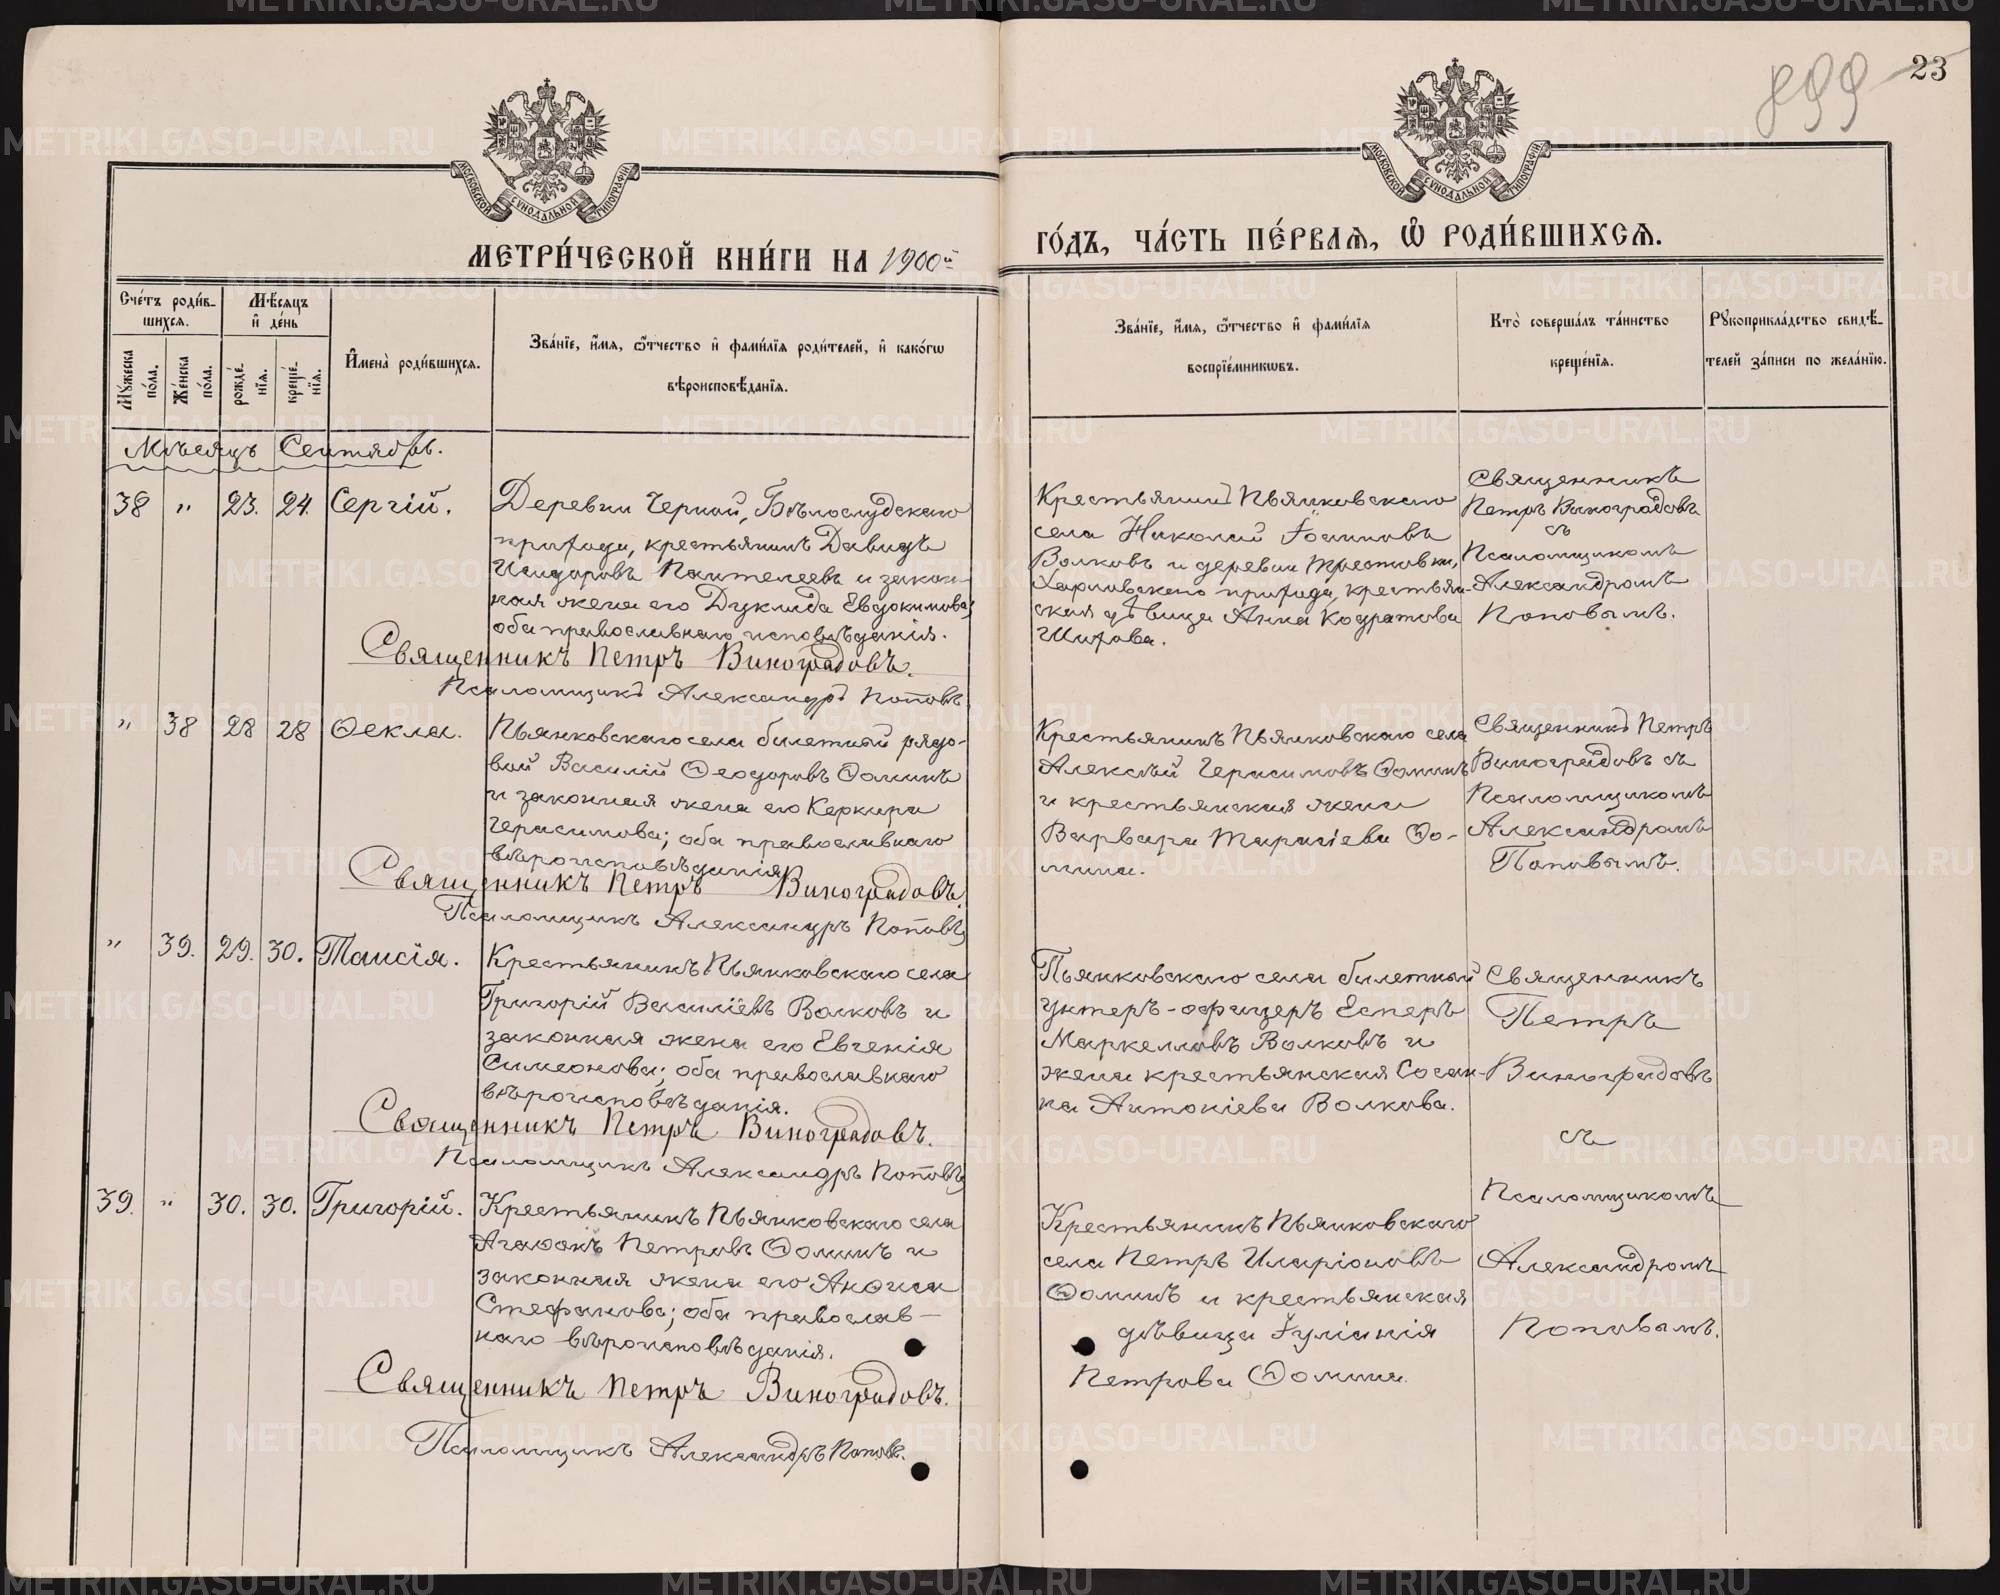 899
23
МОСКОВСКОЙ СѴНОДАЛЬНОЙ ТИПОГРАФІИ
МОСКОВСКОЙ СѴНОДАЛЬНОЙ ТИПОГРАФІИ
МЕТРИ́ЧЕСКОЙ КНИ́ГИ НА 1900й
ГО́ДЪ, ЧА́СТЬ ПЕ́РВАѦ, Ѽ РОДИ́ВШИХСѦ.
Сче́тъ роди́в-
шихсѧ.
Мѣ́сѧцъ
и҆ де́нь
Мꙋ́жеска по́ла.
Же́нска по́ла.
рожде́нїѧ.
креще́нїѧ.
И҆мена̀ роди́вшихсѧ.
Зва́нїе, и҆́мѧ, ѻ҆́тчество и҆ фами́лїѧ роди́телей, и҆ како́гѡ
вѣроисповѣ́данїѧ.
Зва́нїе, и҆́мѧ, ѻ҆́тчество и҆ фами́лїѧ
воспрїе́мникѡвъ.
Кто̀ соверша́лъ та́инство
креще́нїѧ.
Рꙋкоприкла́дство свидѣ́-
телей за́писи по жела́нїю.
Мѣсяцъ Сентябрь.
38 „ 23. 24. Сергій.
Деревни Черной, Бѣлослудскаго
прихода, крестьянинъ Давидъ
Исидоровъ Пантелеевъ и закон-
ная жена его Дуклида Евдокимова;
оба православнаго исповѣданія.
Священникъ Петръ Виноградовъ.
Псаломщикъ Александръ Поповъ
Крестьянинъ Пьянковскаго
села Николай Іоанновъ
Волковъ и деревни Трестовки,
Харловскаго прихода, крестьян-
ская дѣвица Анна Кодратова
Шихова.
Священникъ
Петръ Виноградовъ
съ
Псаломщикомъ
Александромъ
Поповымъ.
„ 38 28 28 Ѳекла.
Пьянковскаго села билетный рядо-
вой Василій Ѳеодоровъ Ѳоминъ
и законная жена его Керкира
Герасимова; оба православнаго
вѣроисповѣданія
Священникъ Петръ Виноградовъ.
Псаломщикъ Александръ Поповъ
Крестьянинъ Пьянковскаго села
Алексѣй Герасимовъ Ѳоминъ
и крестьянская жена
Варвара Тарасіева Ѳо-
мина.
Священникъ Петръ
Виноградовъ съ
Псаломщикомъ
Александромъ
Поповымъ.
„ 39. 29. 30. Таисія.
Крестьянинъ Пьянковскаго села
Григорій Василіевъ Волковъ и
законная жена его Евгенія
Симеонова; оба православнаго
вѣроисповѣданія.
Священникъ Петръ Виноградовъ.
Псаломщикъ Александръ Поповъ
Пьянковскаго села билетный
унтеръ-офицеръ Есперъ
Маркелловъ Волковъ и
жена крестьянская Сосан-
на Антоніева Волкова.
Священникъ
Петръ
Виноградовъ
съ
Псаломщикомъ
Александромъ
Поповымъ.
39. „ 30. 30. Григорій.
Крестьянинъ Пьянковскаго села
Агаѳонъ Петровъ Ѳоминъ и
законная жена его Анѳиса
Стефанова; оба православ-
наго вѣроисповѣданія.
Священникъ Петръ Виноградовъ.
Псаломщикъ Александръ Поповъ.
Крестьянинъ Пьянковскаго
села Петръ Иларіоновъ
Ѳоминъ и крестьянская
дѣвица Іуліанія
Петрова Ѳомина.